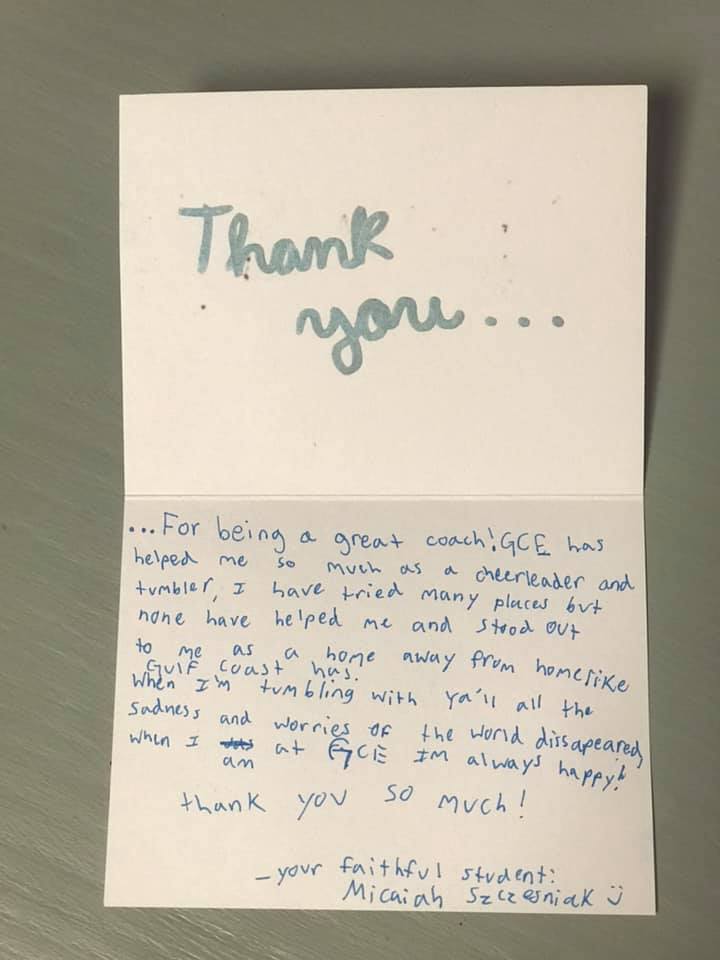 Thank
you...
...For being a great coach! GCE has
helped me so much as a cheerleader and
tumbler, I have tried many places but
none have helped me and stood out
to me as a home away from home like
Gulf Coast has.
When I'm tumbling with ya'll all the
sadness and worries of the world dissapeared,
when I was at GCE Im always happy!
am
thank you so much!
-your faithful student:
Micaiah Szczesniak :)